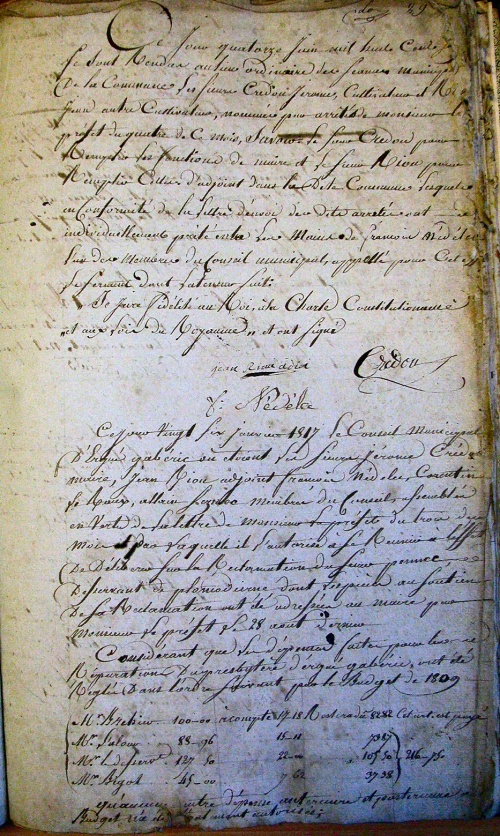 Ce Jour quatorze Juin mil huit Cent
se sont Rendus au lieu ordinaire des séances municipales
De la Commune Les sieurs Credou Jerome, Cultivateur et Rion
Jean autre Cultivateur, nommés par arrêté de monsieur le
préfet du quatre de Ce mois, Savoir le sieur Credou pour
Remplir les fonctions de maire et le sieur Rion pour
Remplir Celles d'adjoint dans la Dite Commune Lesquels
en Conformité de la lettre d'envoi des dits arrêtés ont
individuellement prêté entre Les Mains de francois Nédélec
l'un des Membres du Conseil municipal, appellé pour Cet effet
le serment dont la teneur suit.
Je Jure fidélité au Roi, à la Charte Constitutionnelle
et aux Lois du Royaume, et ont signé
jean Rion adjoint Credou
f. Nédélec
Ce Jour vingt six janvier 1817 le Conseil Municipal
D'Ergué gabéric où étoient Les Sieurs Jerome Credou
maire, Jean Rion adjoint francois Nédélec, Corentin
Le Roux, allain Membres du Conseil, assemblés
en Vertu de la lettre de Monsieur le préfet du trois de
Mois par laquelle il l'autorise à se Réunir à l'effet
De Délibérer sur la Réclamation du sieur
Desservant de plomodierne dont les pièces au soutien
De sa Réclamation ont été adressées au maire par
Monsieur le préfet le 28 aout dernier
Considérant que les dépenses faites pour les
Réparations Du presbytère d'ergué gabéric, ont été
Réglées Dans l'ordre suivant par le Budget de 1809
Mr 100-00 à compte 17-18 Reste dû 82-82
Mr 88-96 15-11 7387
Mr le desserv. 127 50 22-00 105 50 216-75
Mr Bigot 45-00 7 62 37 38
qu'aucune autre dépense antérieure et postérieure
Budget